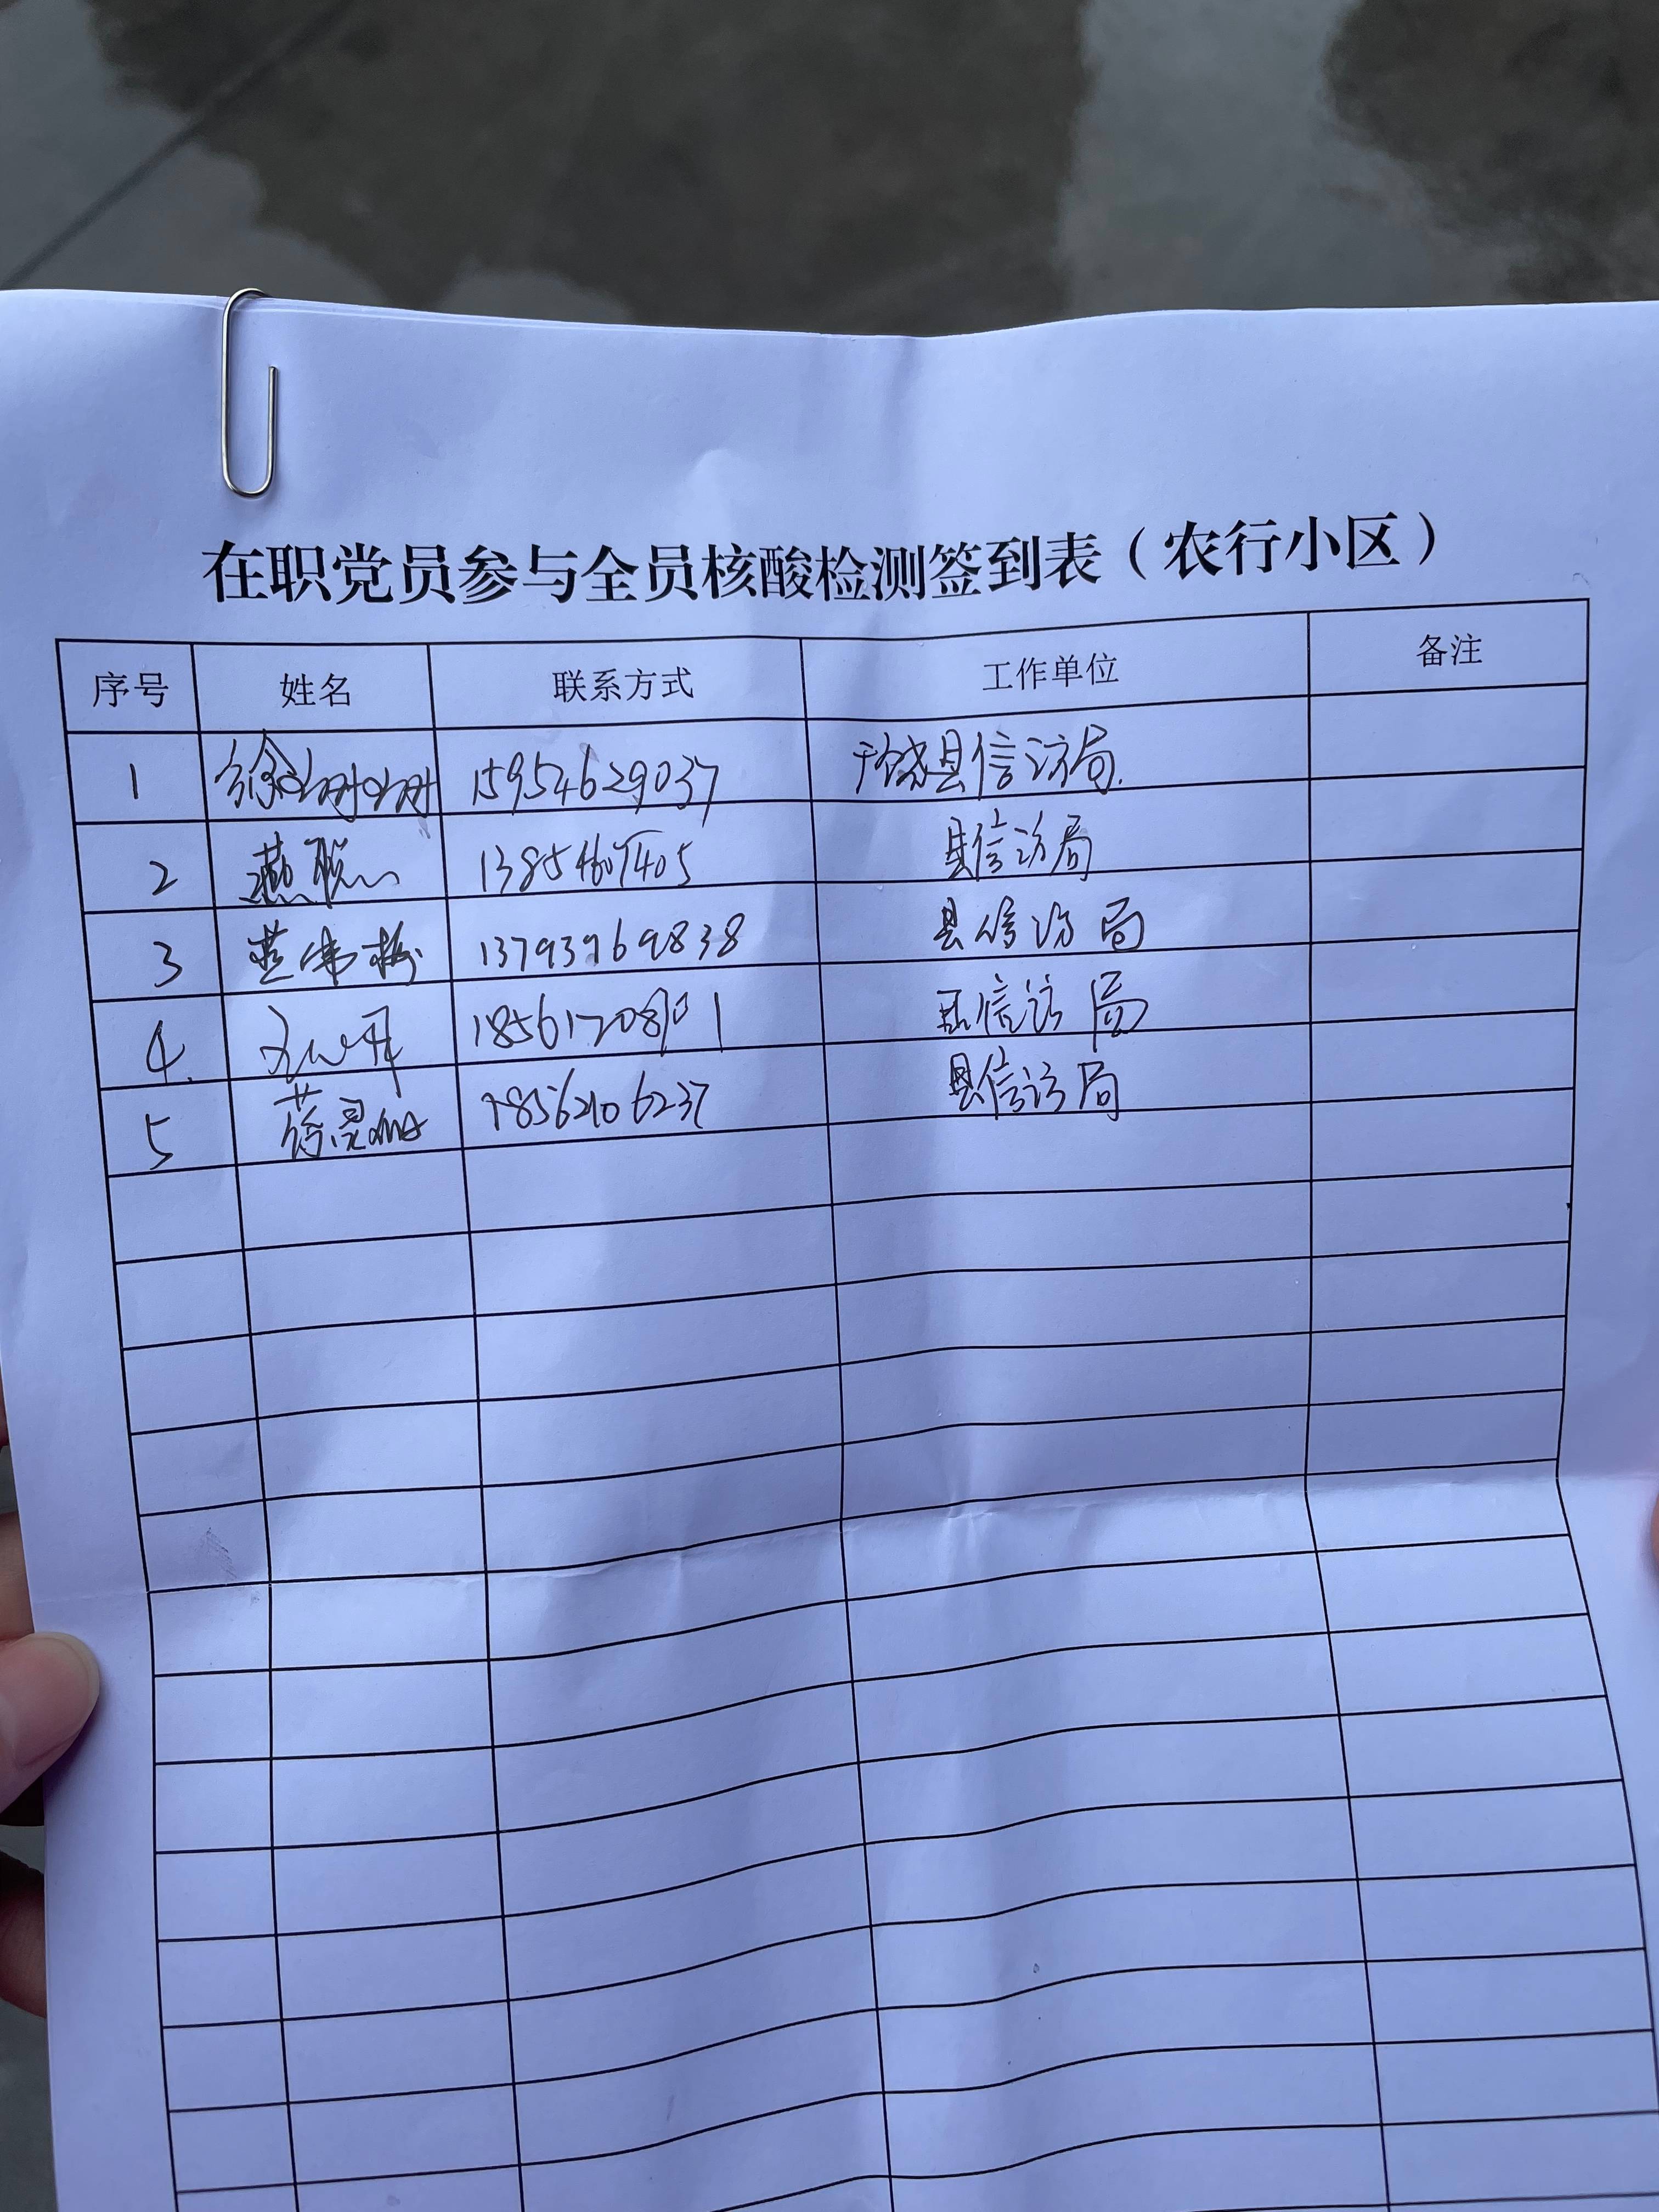 在职党员参与全员核酸检测签到表（农行小区）
序号 姓名 联系方式 工作单位 备注
1 徐珊珊 15954629037 广饶县信访局.
2 燕聪 县信访局
3 13793969838 县信访局
4. 县信访局
5 18562106237 县信访局